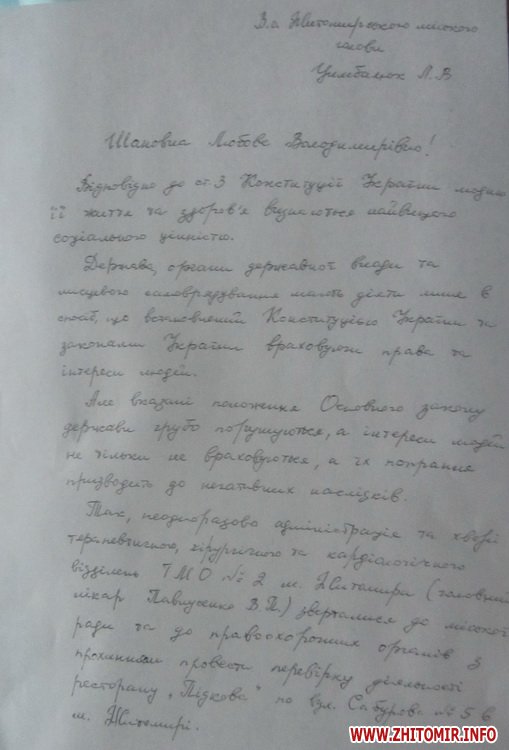 В.о Житомирського міського
голови
Цимбалюк Л.В
Шановна Любове Володимирівно!
Відповідно до ст 3 Конституції України людина
її життя та здоров'я визнаються найвищою
соціальною цінністю.
Держава, органи державної влади та
місцевого самоврядування мають діяти лише в
спосіб, що встановлений Конституцією України та
законами України враховуючи права та
інтереси людей.
Але вказані положення Основного закону
держави грубо порушуються, а інтереси людей
не тільки не враховуються, а їх попрання
призводить до негативних наслідків.
Так, неодноразово адміністрація та хворі
терапевтичного, хірургічного та кардіологічного
відділень ТМО № 2 м. Житомира (головний
лікар Павлусенко В.П.) зверталися до міської
ради та до правоохоронних органів з
проханням провести перевірку діяльності
ресторану „Підкова" по вул. Сабурова № 5 в
м. Житомирі.
WWW.ZHITOMIR.INFO